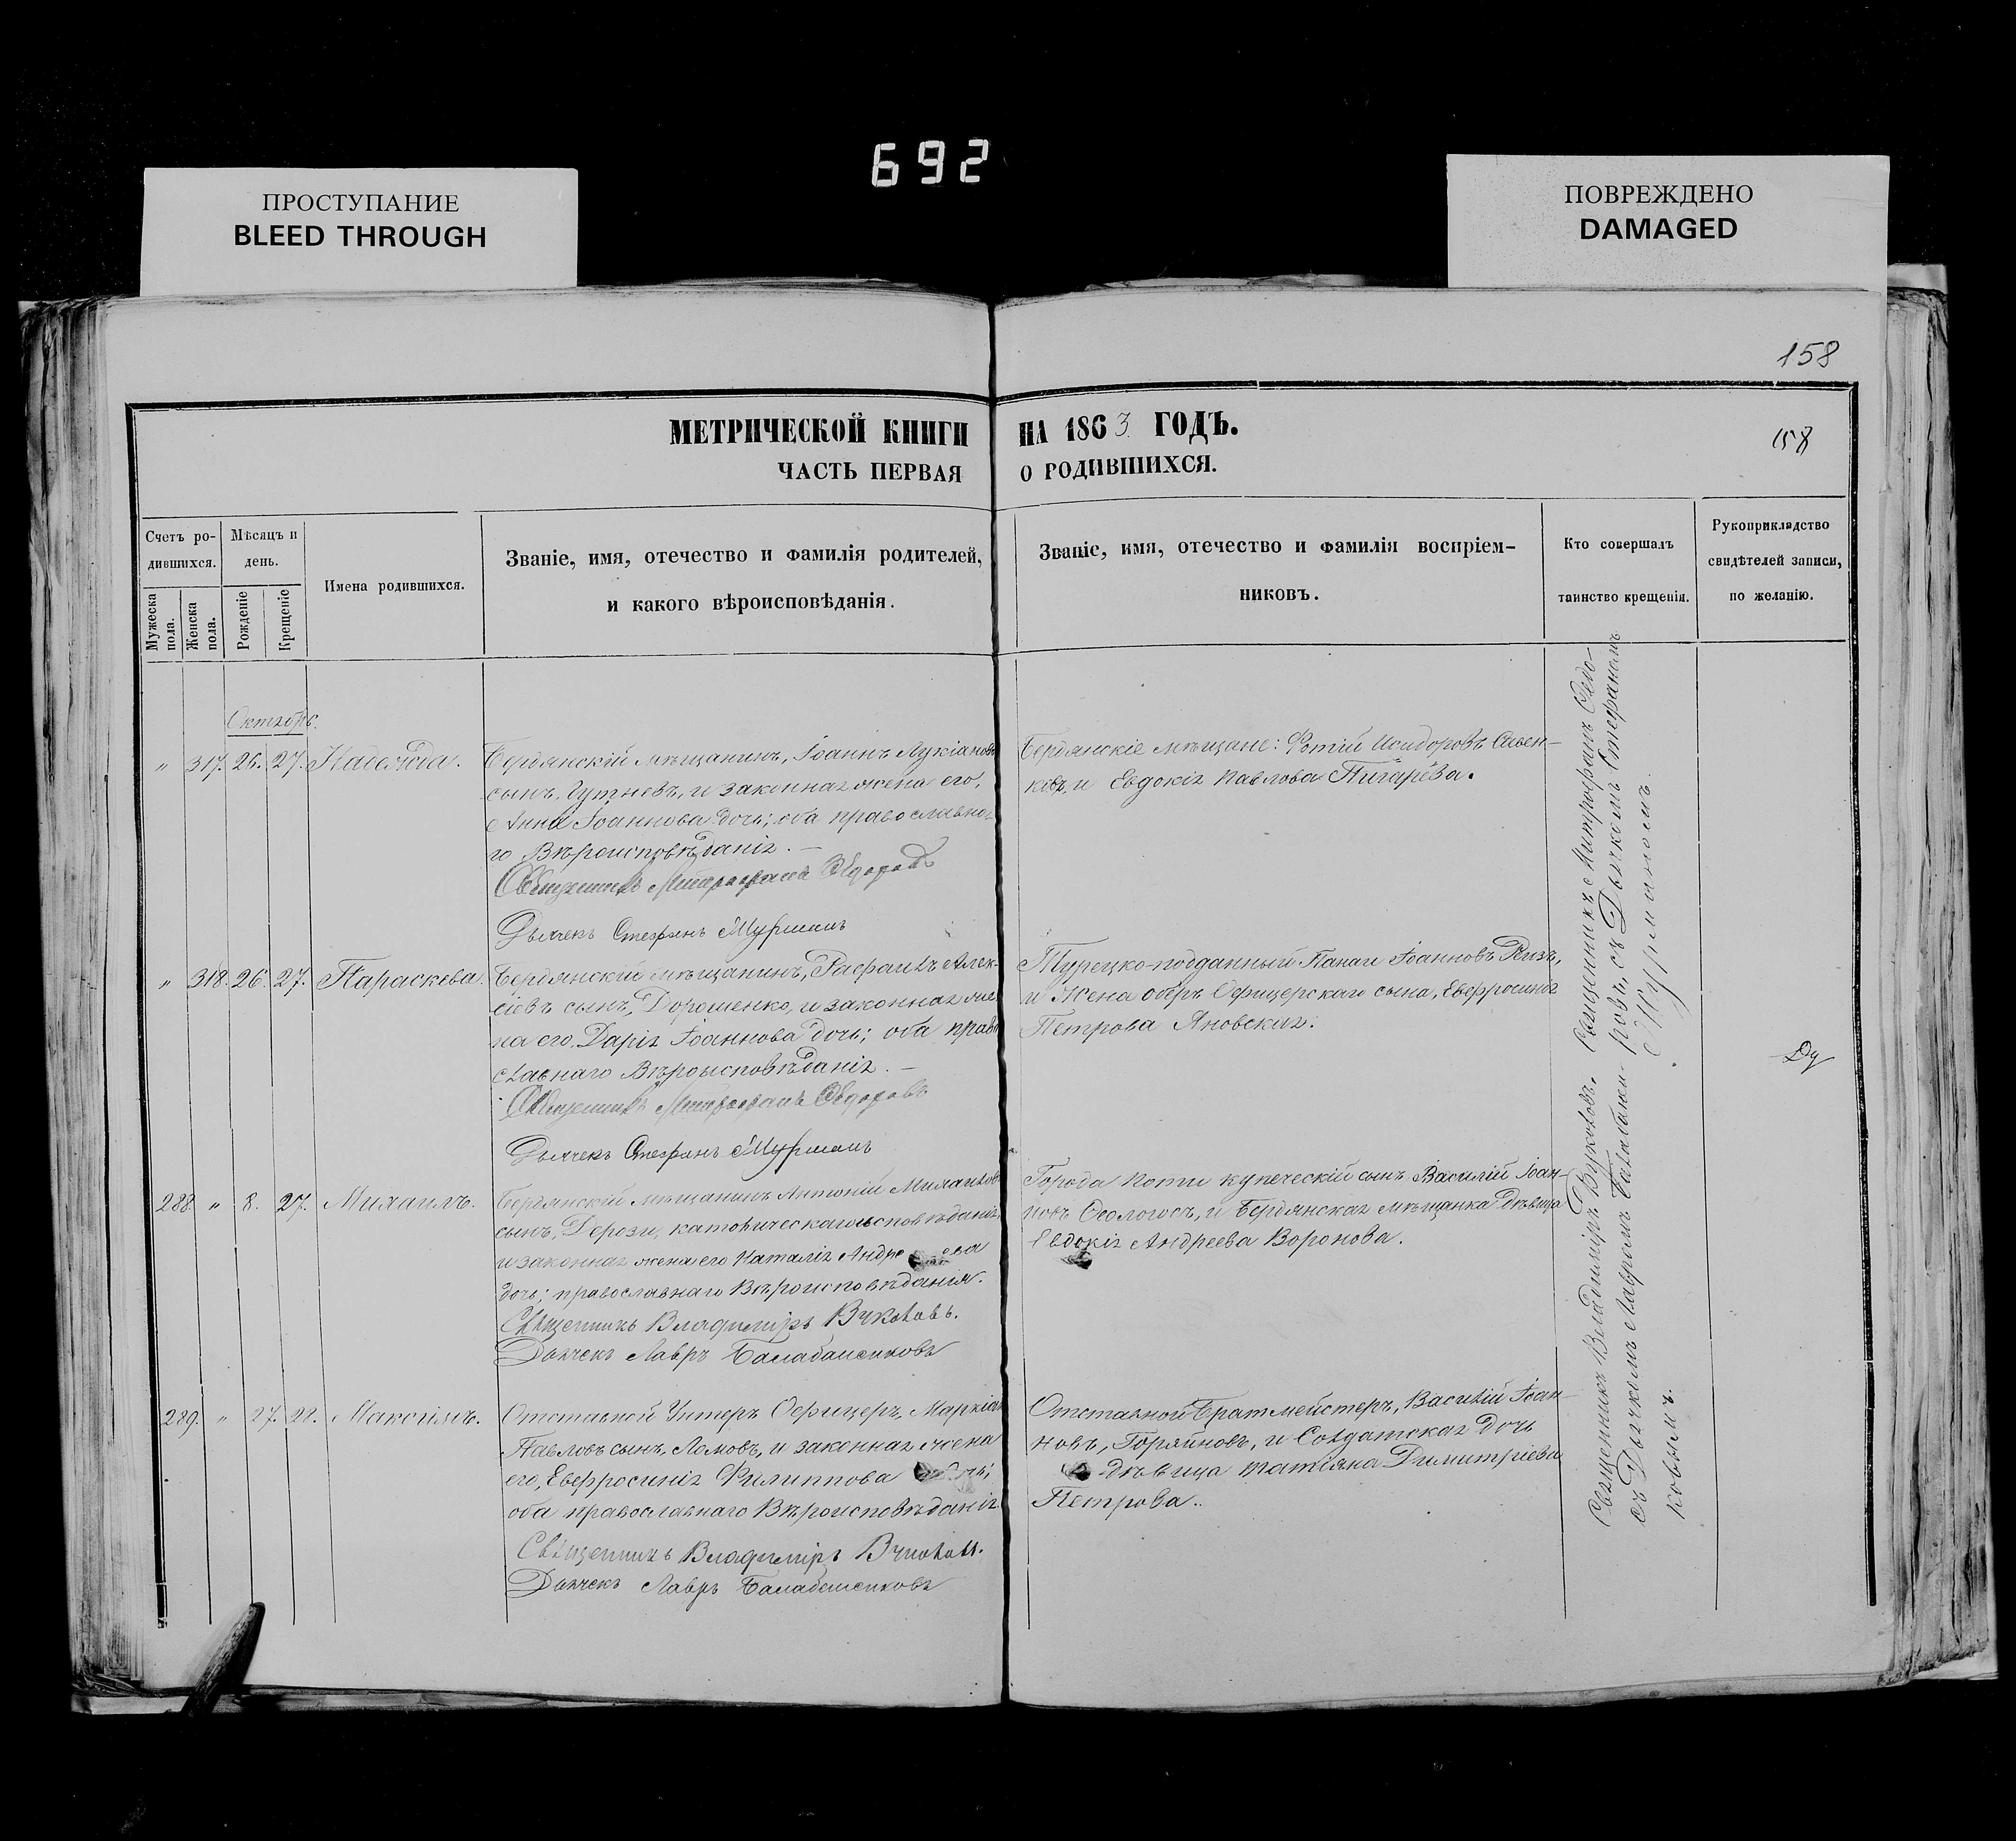 692
ПРОСТУПАНИЕ
BLEED THROUGH
ПОВРЕЖДЕНО
DAMAGED
158
МЕТРИЧЕСКОЙ КНИГИ НА 1863 ГОДЪ.
158
ЧАСТЬ ПЕРВАЯ О РОДИВШИХСЯ.
Счетъ ро-
дившихся.
Мужеска
пола.
Женска
пола.
Мѣсяцъ и
день.
Рожденіе
Крещеніе
Имена родившихся.
Званіе, имя, отечество и фамилія родителей,
и какого вѣроисповѣданія.
Званіе, имя, отечество и фамилія воспріем-
никовъ.
Кто совершалъ
таинство крещенія.
Рукоприкладство
свидѣтелей записи,
по желанію.
Октябрь.
" 317. 26. 27. Надежда.
Бердянскій мѣщанинъ, Іоаннъ Лукіановъ
сынъ, и законная жена его,
Анна Іоаннова дочь; оба православна-
го Вѣроисповѣданія. —
Священникъ Митрофанъ Ѳедоровъ
Дьячекъ Стефанъ Шурманъ
Бердянскіе мѣщане: Фотій Исидоровъ
и Евдокія Павлова Пигарева.
" 318. 26. 27. Параскева.
Бердянскій мѣщанинъ, Рафаилъ Алек-
сіевъ сынъ, Дорошенко, и законная же-
на его Дарія Іоаннова дочь; оба право-
славнаго Вѣроисповѣданія. —
Священникъ Митрофанъ Ѳедоровъ
Дьячекъ Стефанъ Шурманъ
Турецко-подданный Панаги Іоанновъ
и Жена Оберъ Офицерскаго сына, Евфросинія
Петрова Яновская.
288. " 8. 27. Михаилъ.
Бердянскій мѣщанинъ Антоній Михаиловъ
сынъ, Дерози, католическаго исповѣданія,
и законная жена его Наталія Андреева
дочь; православнаго Вѣроисповѣданія.
Священникъ Владиміръ Вуколовъ.
Дьячекъ Лавръ Балабаненковъ
Города Поти купеческій сынъ Василій Іоан-
новъ Ѳеологосъ, и Бердянская мѣщанка дѣвица
Евдокія Андреева Воронова.
289. " 27. 28. Максимъ.
Отставной Унтеръ Офицеръ, Маркіанъ
Павловъ сынъ, Ломовъ, и законная жена
его, Евфросинія Филиппова дочь;
оба православнаго Вѣроисповѣданія.
Священникъ Владиміръ Вуколовъ.
Дьячекъ Лавръ Балабаненковъ
Отставной Брантмейстеръ, Василій Іоан-
новъ, Горяиновъ, и Солдатская дочь
дѣвица Татіана Димитріева
Петрова.
Священникъ Митрофанъ Ѳедо-
ровъ, съ Дьячкомъ Стефаномъ
Шурманомъ.
Священникъ Владиміръ Вуколовъ.
съ Дьячкомъ Лавромъ Балабанен-
ковымъ.